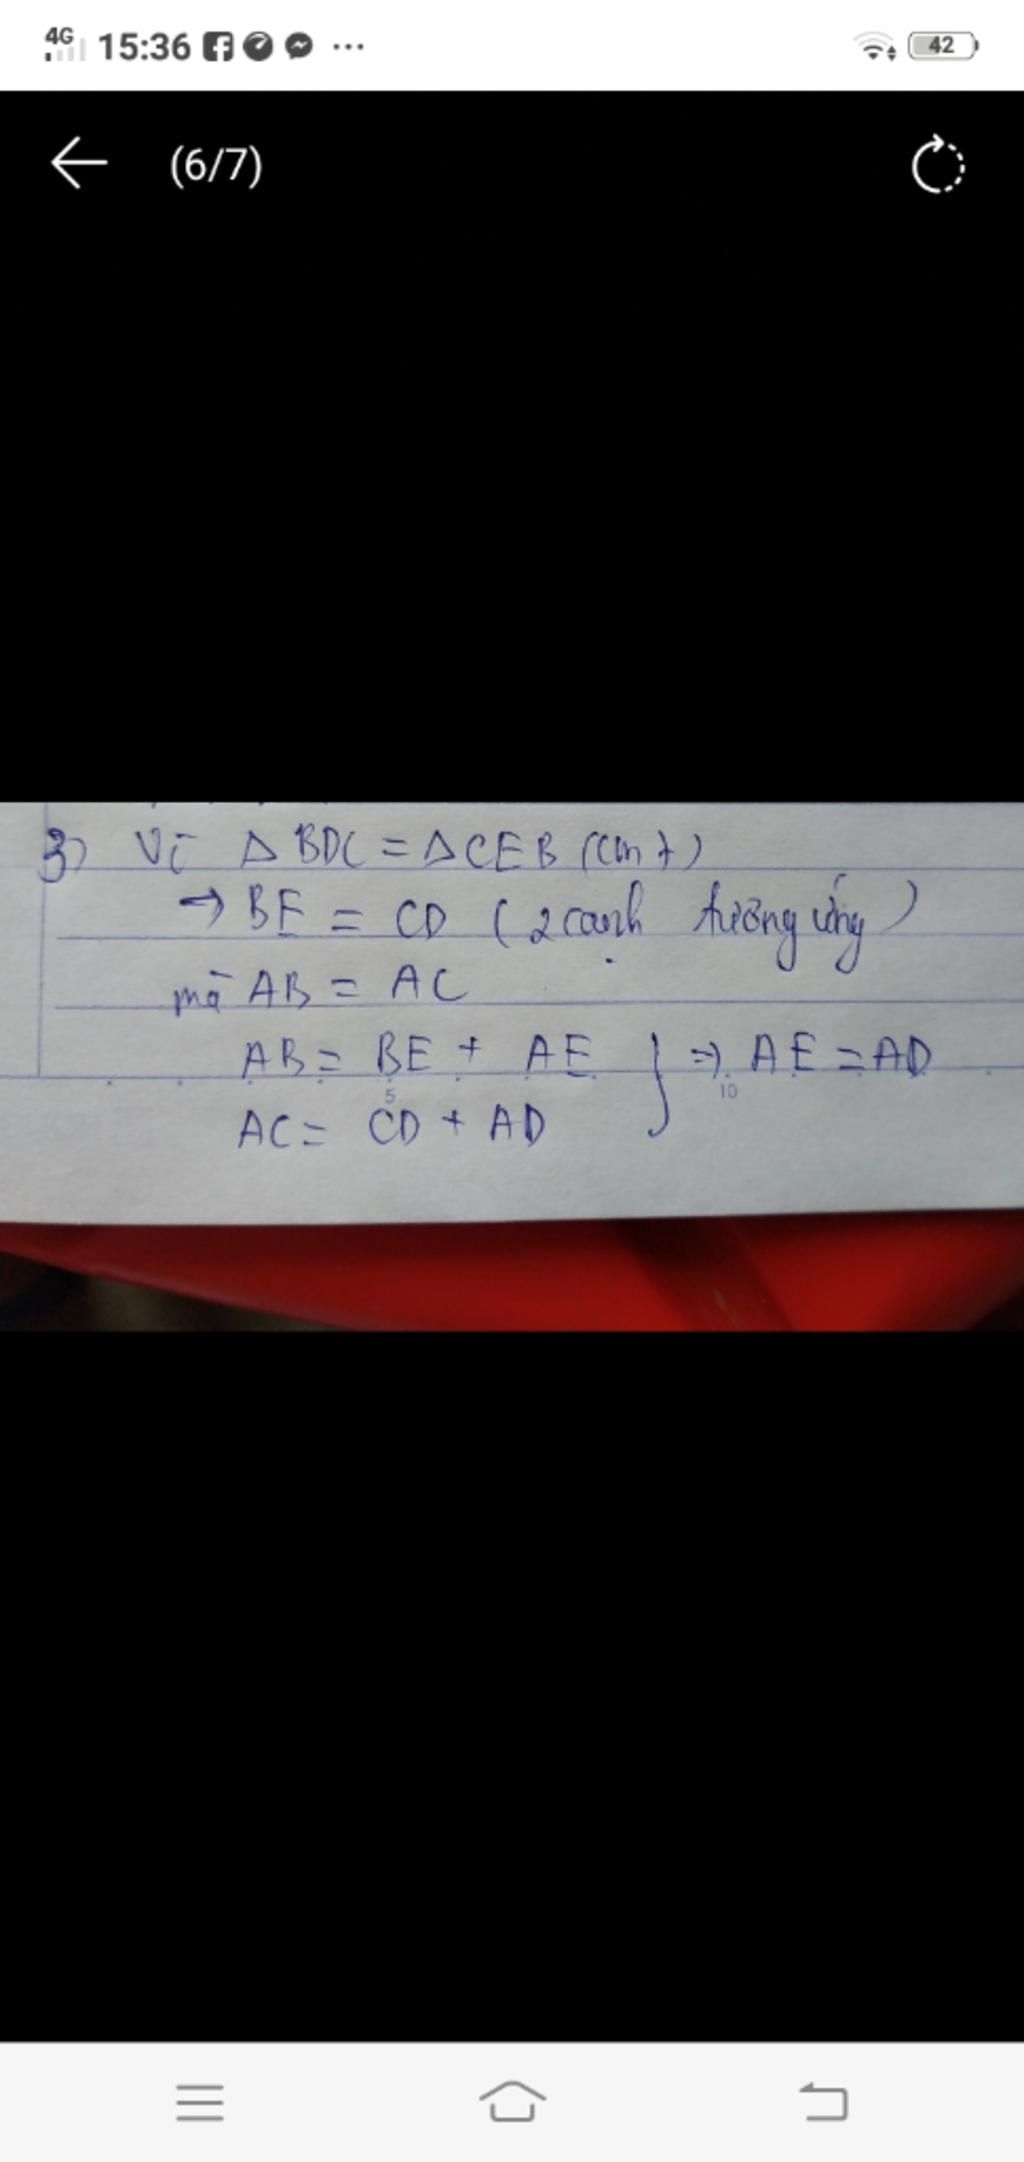 4G 15:36 ... 42
(6/7)
3) Vì Δ BDC = Δ CEB (cmt)
→ BE = CD (2 cạnh tương ứng)
mà AB = AC
AB = BE + AE } => AE = AD
5 10
AC = CD + AD